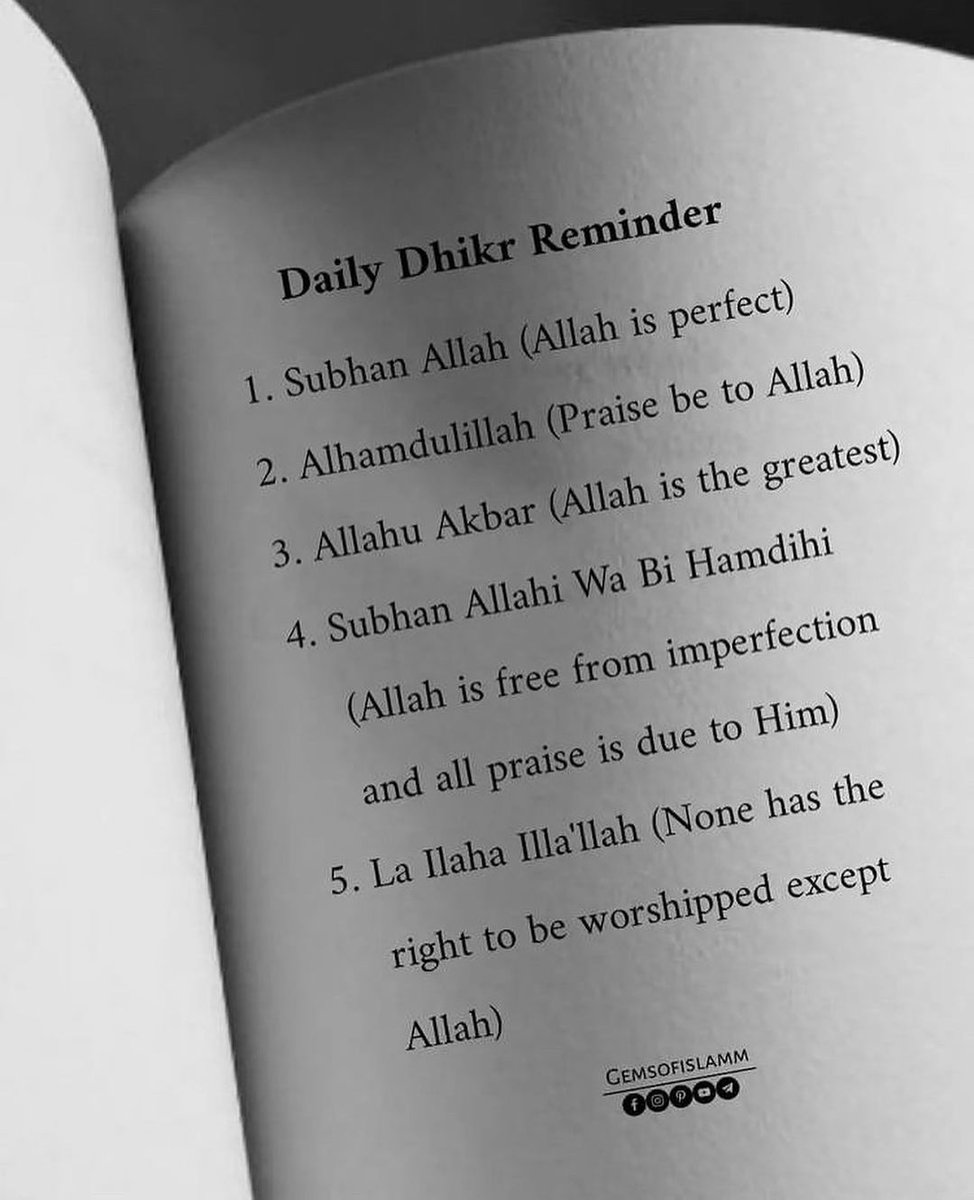 Daily Dhikr Reminder
1. Subhan Allah (Allah is perfect)
2. Alhamdulillah (Praise be to Allah)
3. Allahu Akbar (Allah is the greatest)
4. Subhan Allahi Wa Bi Hamdihi
(Allah is free from imperfection
and all praise is due to Him)
5. La Ilaha Illa'llah (None has the
right to be worshipped except
Allah)
GEMSOFISLAMM